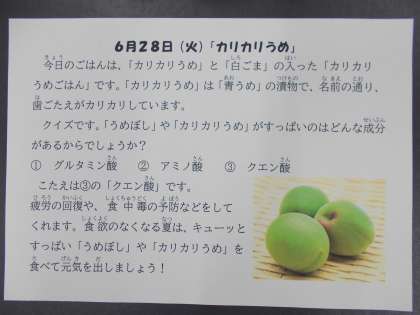 6月28日（火）「カリカリうめ」
今日のごはんは、「カリカリうめ」と「白ごま」の入った「カリカリ
うめごはん」です。「カリカリうめ」は「青うめ」の漬物で、名前の通り、
歯ごたえがカリカリしています。
クイズです。「うめぼし」や「カリカリうめ」がすっぱいのはどんな成分
があるからでしょうか？
① グルタミン酸 ② アミノ酸 ③ クエン酸
こたえは③の「クエン酸」です。
疲労の回復や、食中毒の予防などをして
くれます。食欲のなくなる夏は、キューッと
すっぱい「うめぼし」や「カリカリうめ」を
食べて元気を出しましょう！